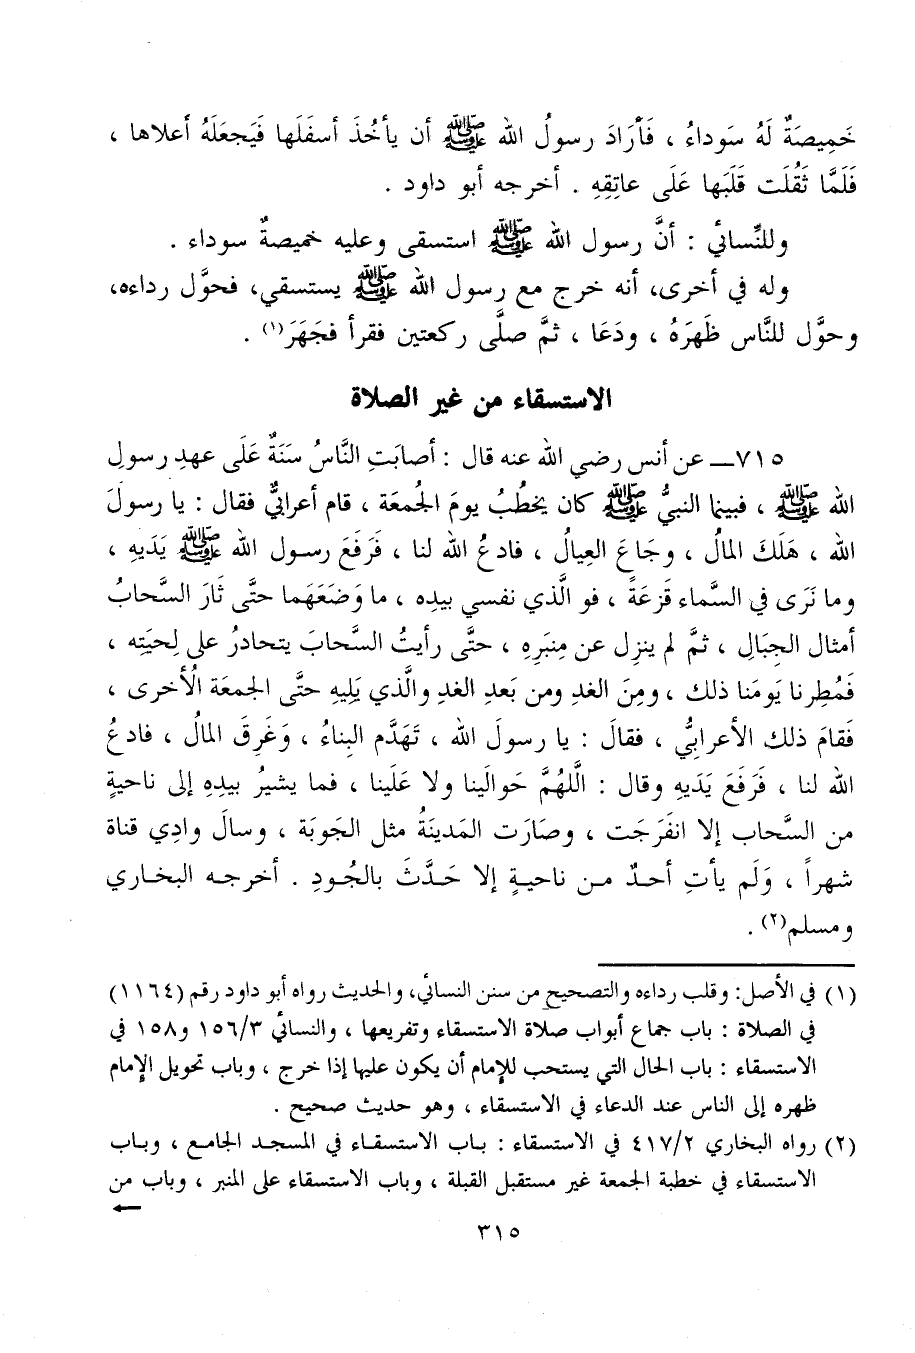 خَمِيصَةٌ لَهُ سَوداءُ ، فَأَرَادَ رسولُ الله ﷺ أن يأخُذَ أسفَلَها فَيَجعَلَهُ أعلاها ،
فَلَمَّا ثَقُلَت قَلَبَها عَلَى عاتِقِهِ . أخرجه أبو داود .
وللنِّسائي : أنَّ رسول الله ﷺ استسقى وعليه خميصةٌ سوداء .
وله في أخرى، أنه خرج مع رسول الله ﷺ يستسقي، فحوَّل رداءه،
وحوَّل للنَّاس ظَهرَهُ ، ودَعَا ، ثمَّ صلَّى ركعتين فقرأ فجَهَرَ(١) .
الاستسقاء من غير الصلاة
٧١٥ــ عن أنس رضي الله عنه قال : أصابَتِ النَّاسُ سَنَةٌ عَلَى عهدِ رسولِ
الله ﷺ ، فبينما النبيُّ ﷺ كان يخطُبُ يومَ الجُمعَة ، قام أعرابيٌّ فقال : يا رسولَ
الله ، هَلَكَ المالُ ، وجَاعَ العِيالُ ، فادعُ الله لنا ، فَرَفَعَ رسول الله ﷺ يَدَيهِ ،
وما نَرَى في السَّماء قَزعَةً ، فو الَّذي نفسي بيدِه ، ما وَضَعَهما حتَّى ثَارَ السَّحابُ
أمثال الجِبَالِ ، ثمَّ لم ينزِل عن مِنبَرِهِ ، حتَّى رأيتُ السَّحابَ يتحادرُ على لِحيَتِه ،
فَمُطِرنا يَومَنا ذلك ، ومِنَ الغدِ ومن بَعدِ الغدِ والَّذي يَلِيهِ حتَّى الجمعَة الأُخرى ،
فَقامَ ذلك الأعرابيُّ ، فقالَ : يا رسولَ الله ، تَهَدَّم البِناءُ ، وَغَرِقَ المالُ ، فادعُ
الله لنا ، فَرَفَعَ يَدَيهِ وقال : الَّلهُمَّ حَوالَينا ولا عَلَينا ، فما يشيرُ بيدِهِ إلى ناحيةٍ
من السَّحاب إلا انفَرَجَت ، وصَارَت المَدينَةُ مثل الجَوبَة ، وسالَ وادِي قناة
شهراً ، وَلَم يأتِ أحدٌ من ناحيةٍ إلا حَدَّثَ بالجُودِ . أخرجه البخاري
ومسلم(٢) .
(١) في الأصل: وقلب رداءه والتصحيح من سنن النسائي، والحديث رواه أبو داود رقم (١١٦٤)
في الصلاة : باب جماع أبواب صلاة الاستسقاء وتفريعها ، والنسائي ١٥٦/٣ و١٥٨ في
الاستسقاء : باب الحال التي يستحب للإمام أن يكون عليها إذا خرج ، وباب تحويل الإمام
ظهره إلى الناس عند الدعاء في الاستسقاء ، وهو حديث صحيح .
(٢) رواه البخاري ٤١٧/٢ في الاستسقاء : باب الاستسقاء في المسجد الجامع ، وباب
الاستسقاء في خطبة الجمعة غير مستقبل القبلة ، وباب الاستسقاء على المنبر ، وباب من
٣١٥